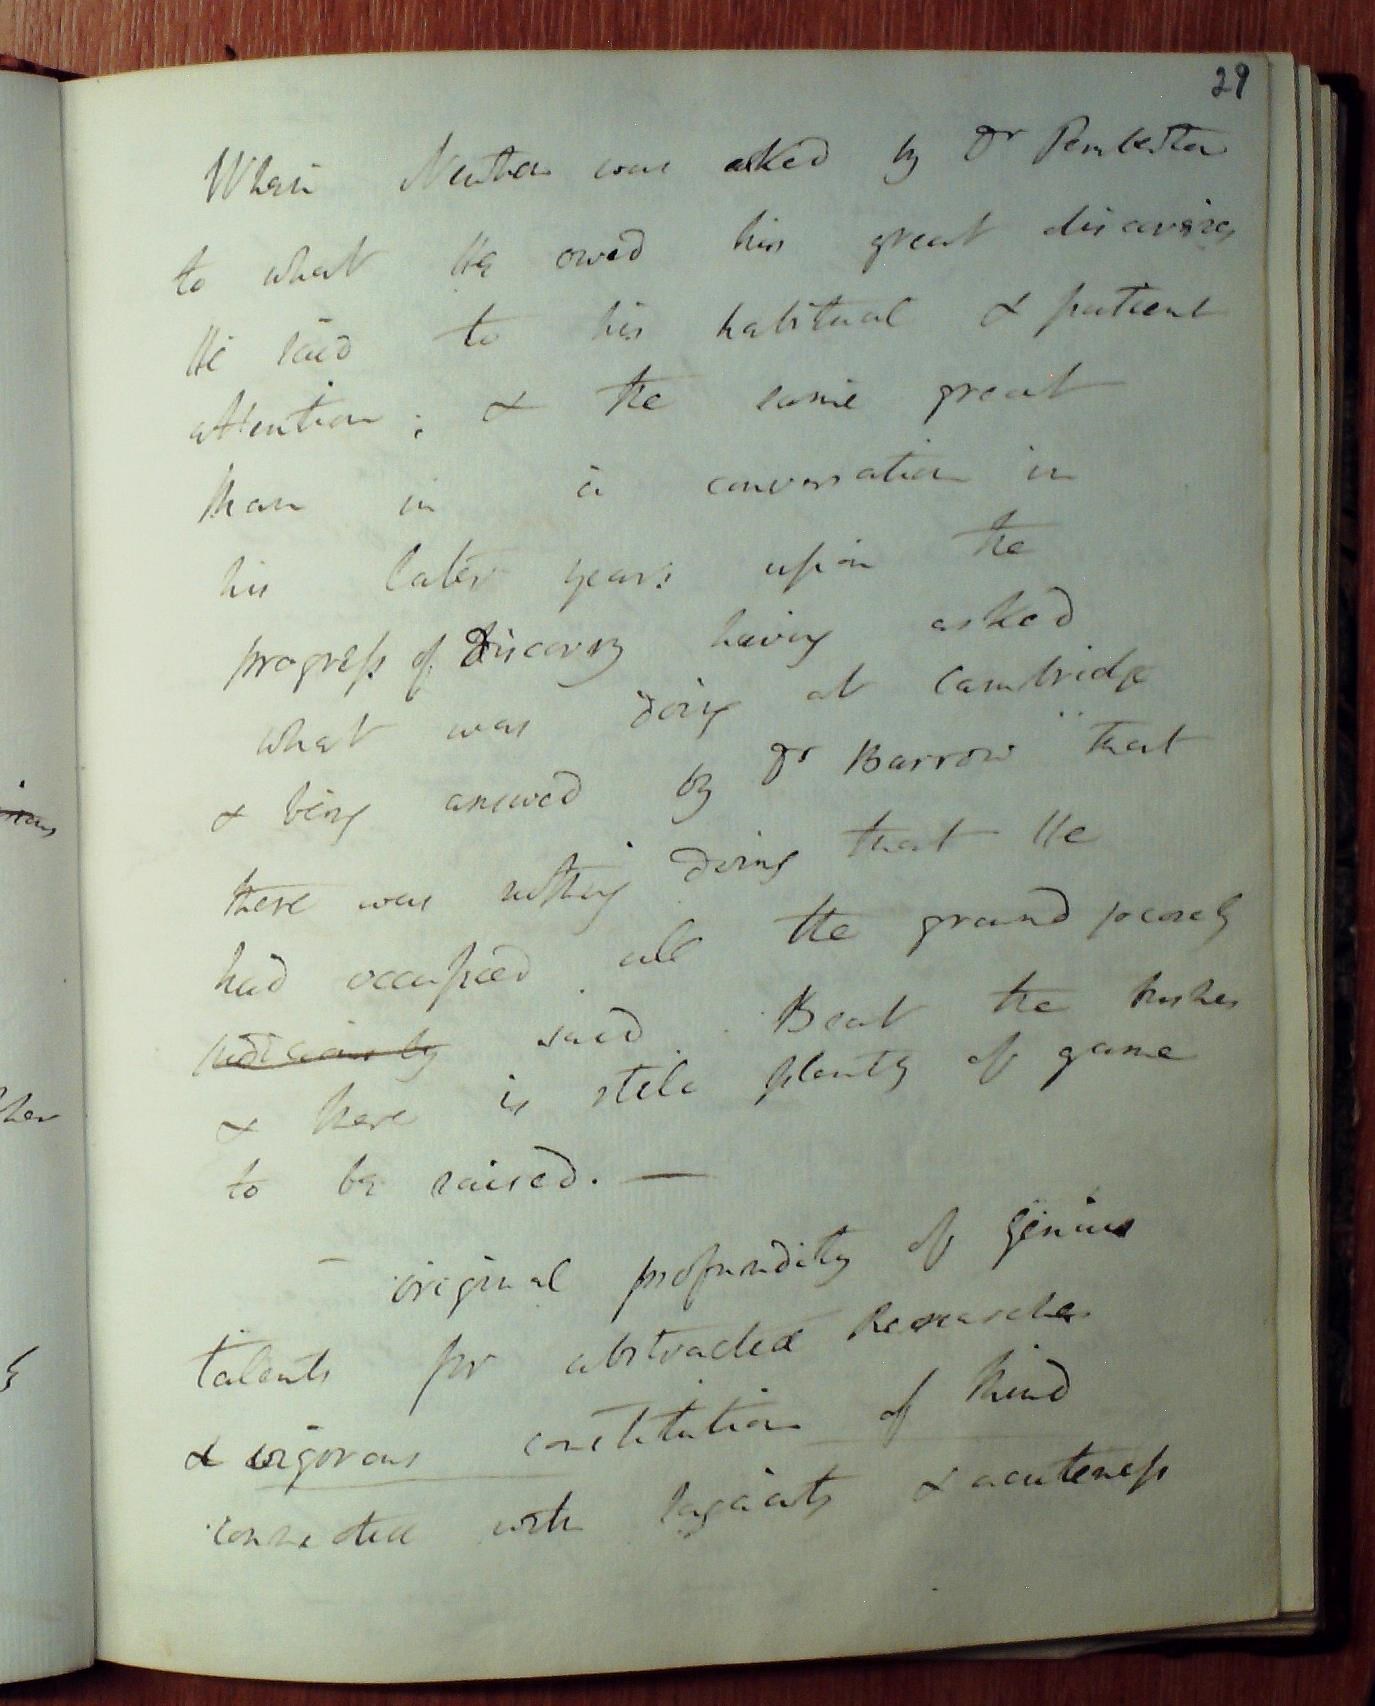 29
When Newton was asked by Dr Pemberton
to what He owed his great discoveries
He said to his habitual & patient
attention; & the same great
Man in a conversation in
his later years upon the
progress of Discovery having asked
what was doing at Cambridge
& being answered by Dr Barrow that
there was nothing doing that He
had occupied all the ground jocosely
judiciously said Beat the bushes
& there is still plenty of game
to be raised. —
— original profundity of Genius
talents for abstracted Researches
& vigorous constitution of Mind
connected with sagacity & acuteness